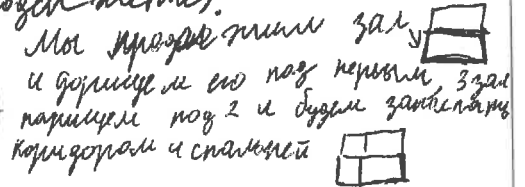 Мы продолжим зал
и дорищем его под первым, 3 зал
парищем под 2 и будем заносиять
коридором и спальней